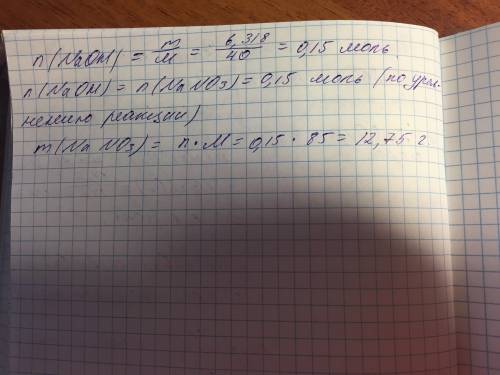 n(NaOH) = m/M = 6,318/40 = 0,15 моль
n(NaOH) = n(NaNO3) = 0,15 моль (по урав-
нению реакции)
m(NaNO3) = n·M = 0,15 · 85 = 12,75 г.